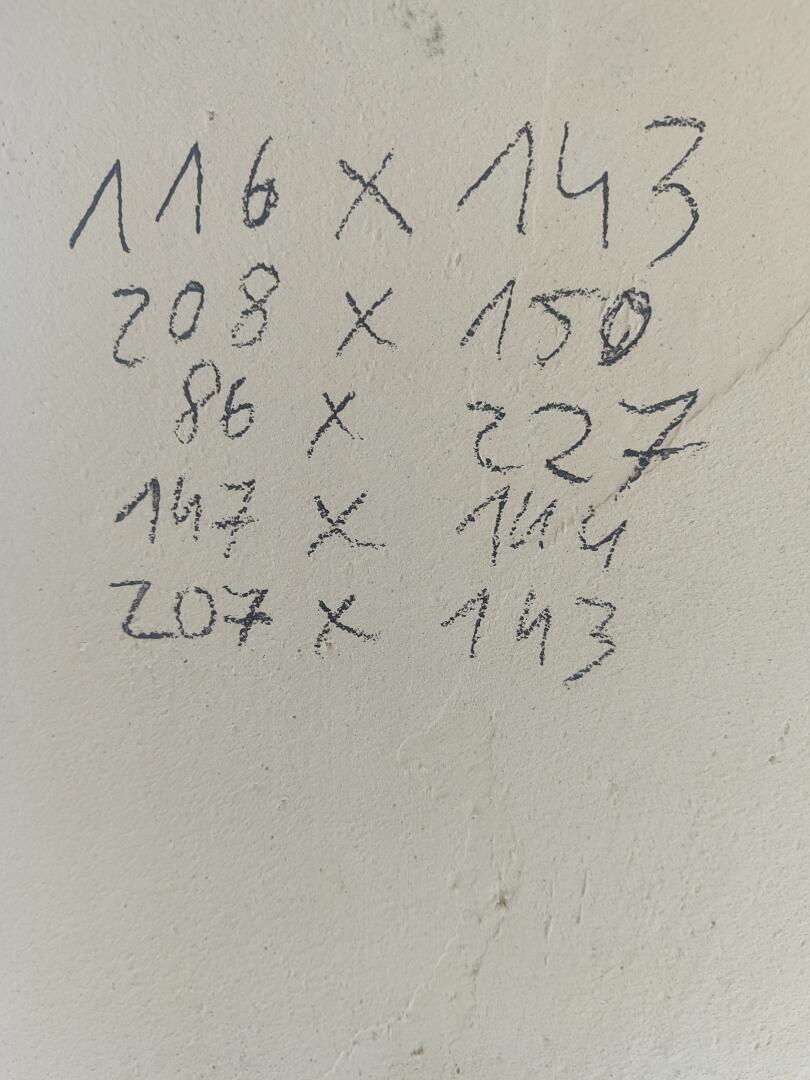 116 x 143
208 x 150
86 x 227
147 x 144
207 x 143